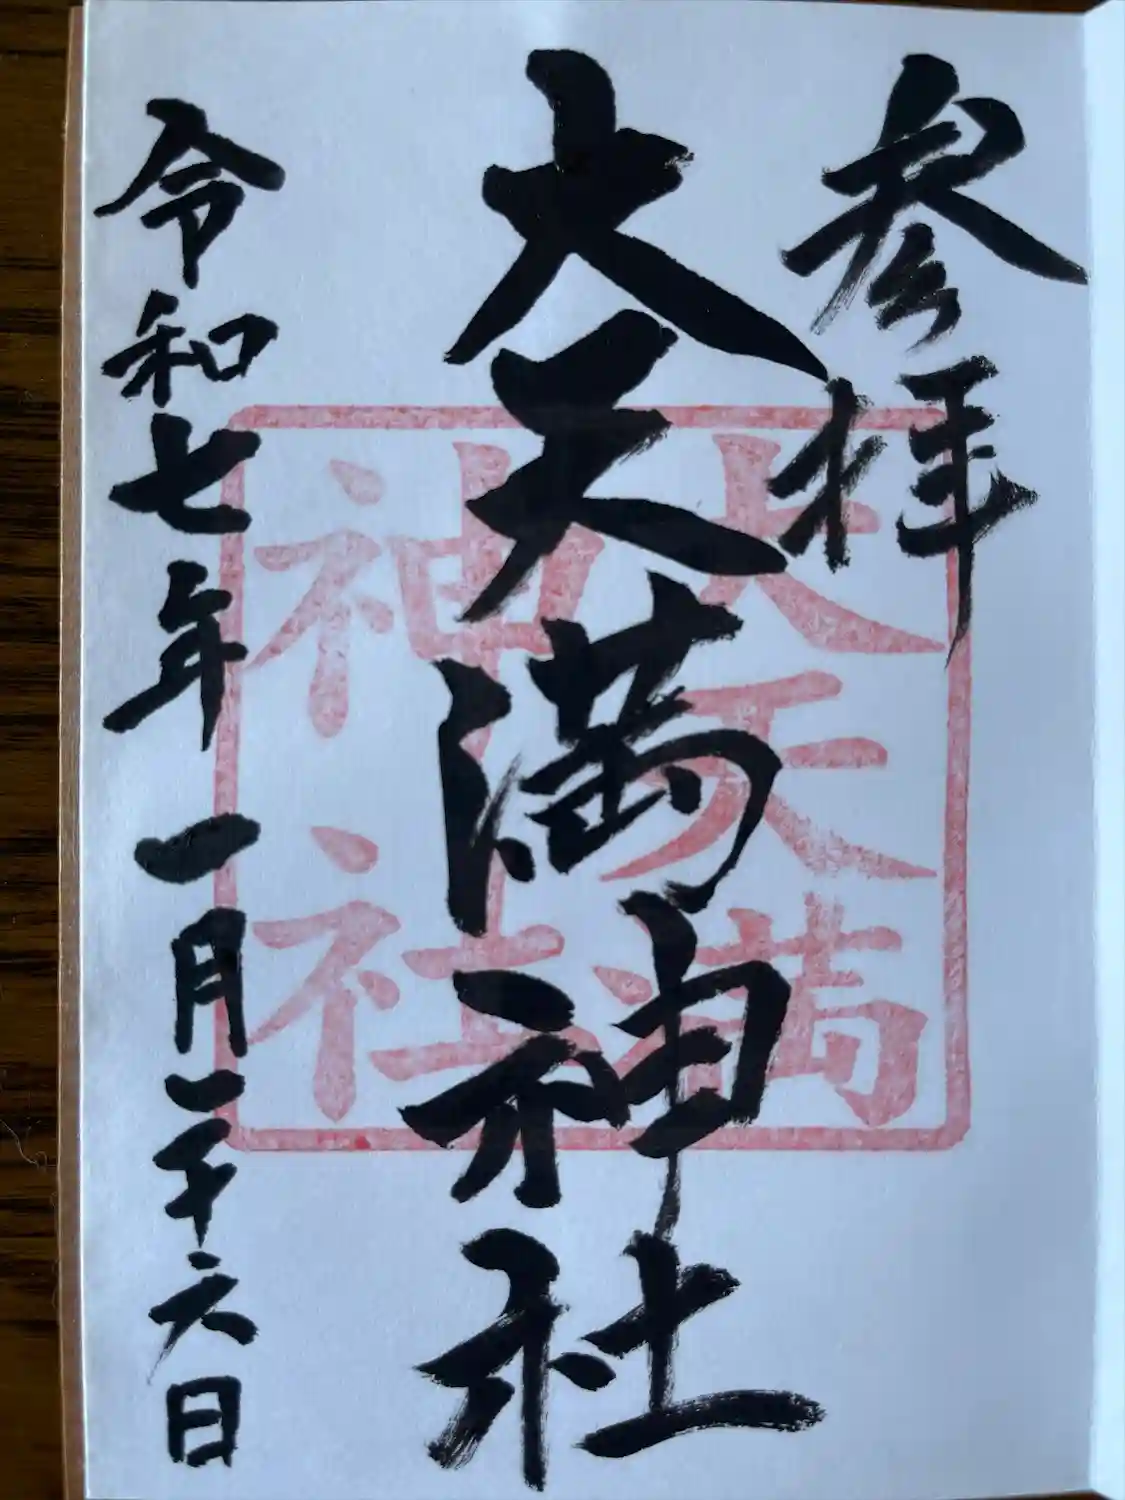 参拝
大天満神社
令和七年一月二十六日
大天満
神社